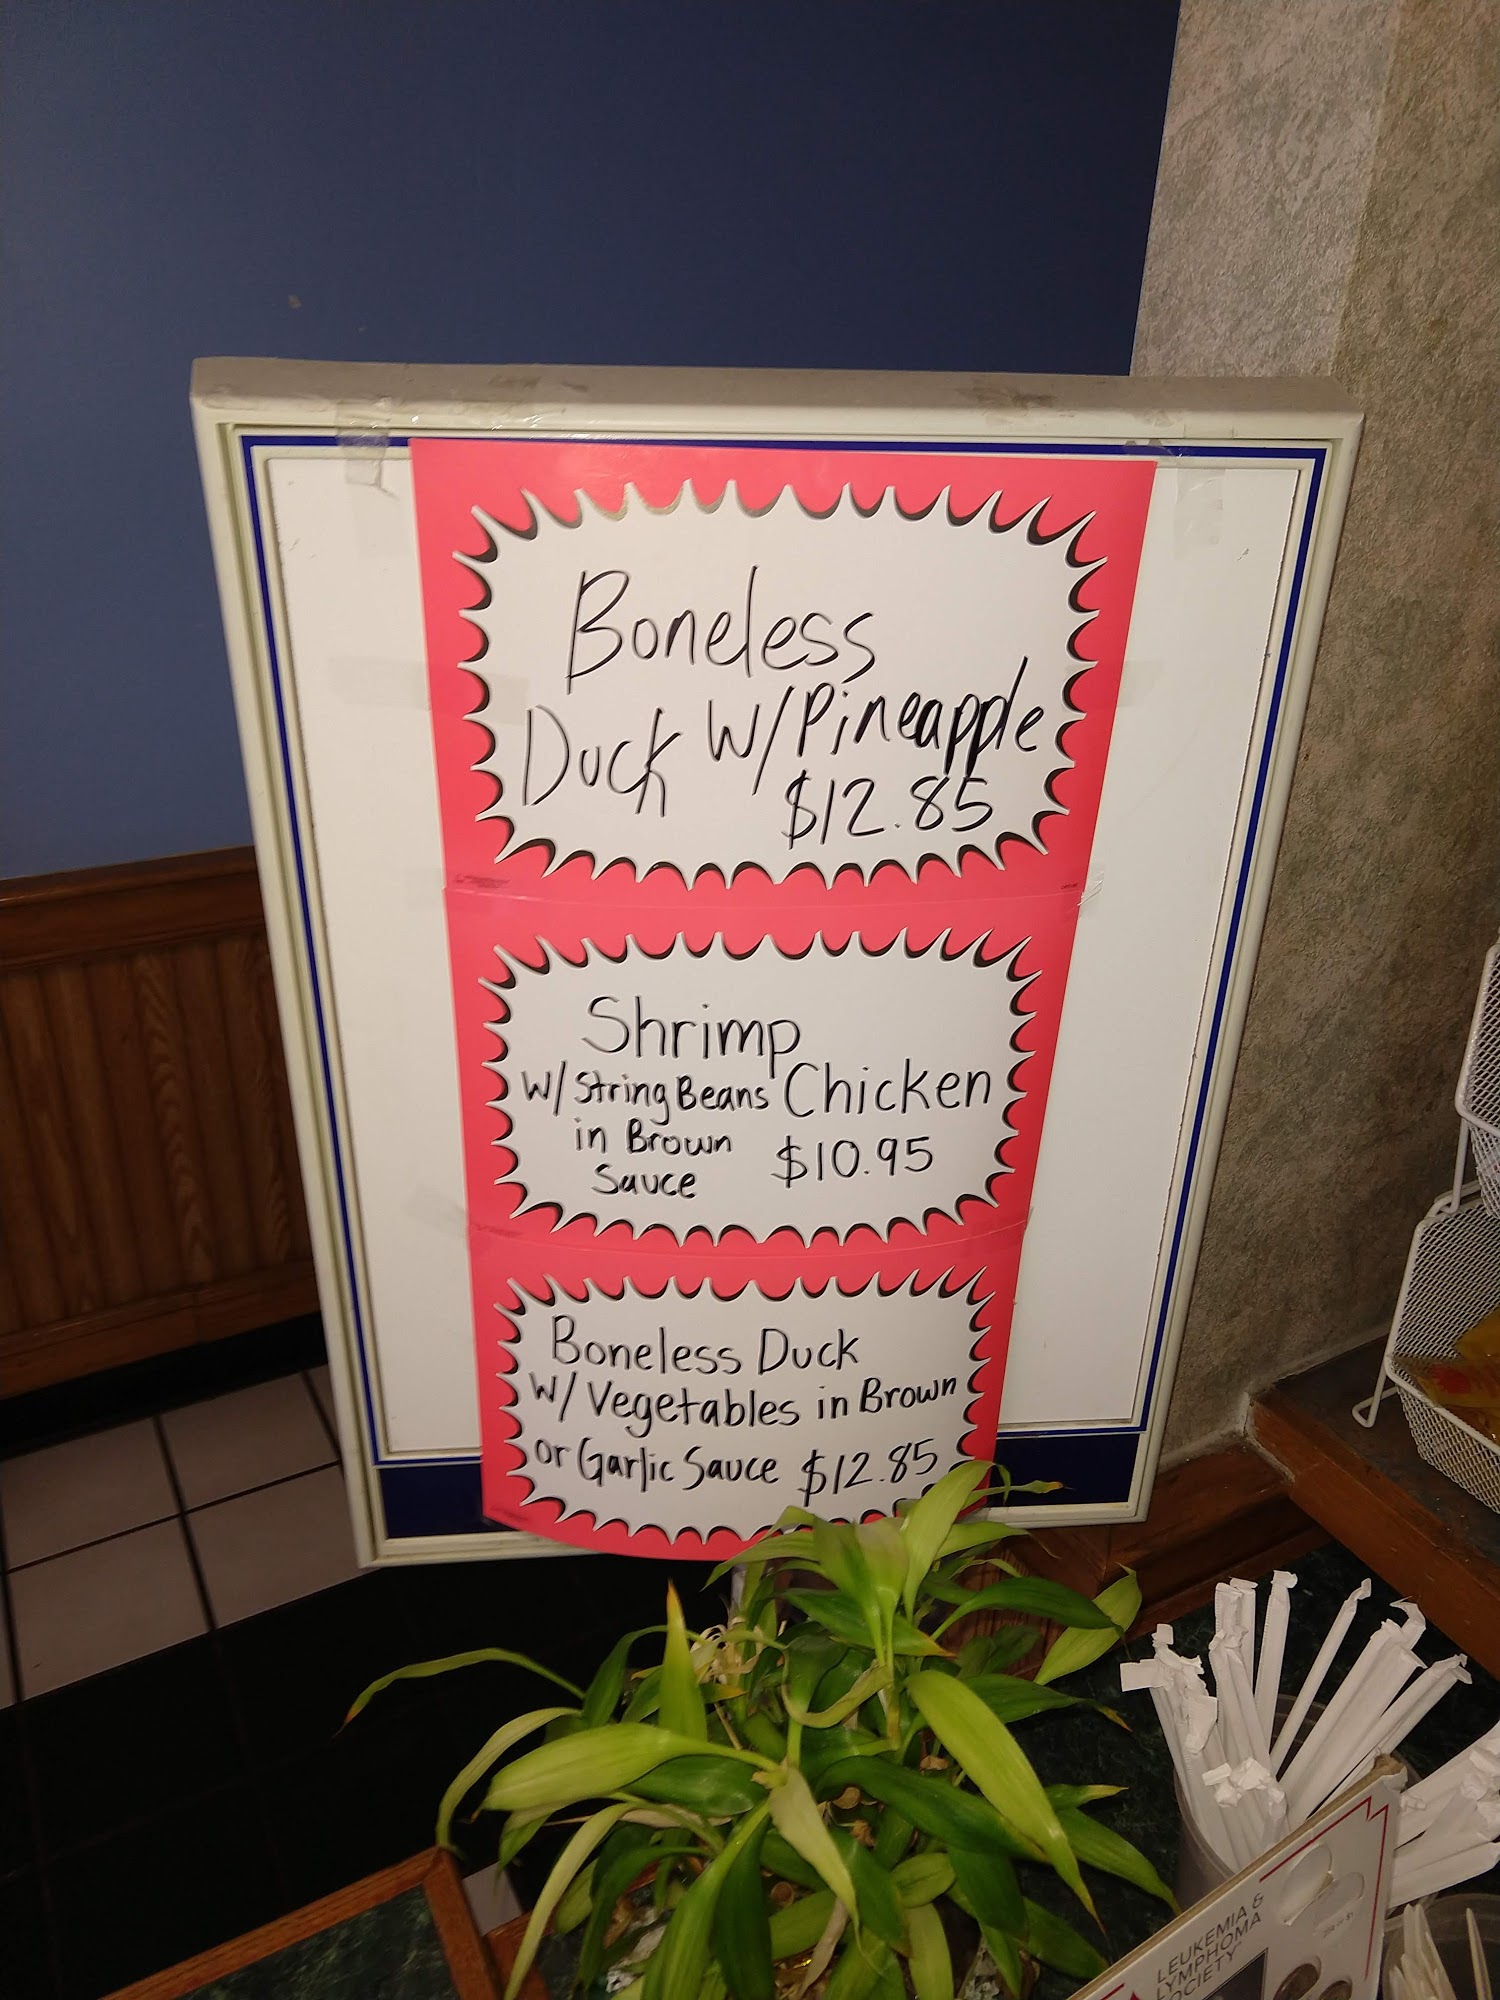 Boneless
Duck W/Pineapple
$12.85
Shrimp
W/String Beans Chicken
in Brown $10.95
Sauce
Boneless Duck
W/Vegetables in Brown
or Garlic Sauce $12.85
LEUKEMIA &
LYMPHOMA
SOCIETY